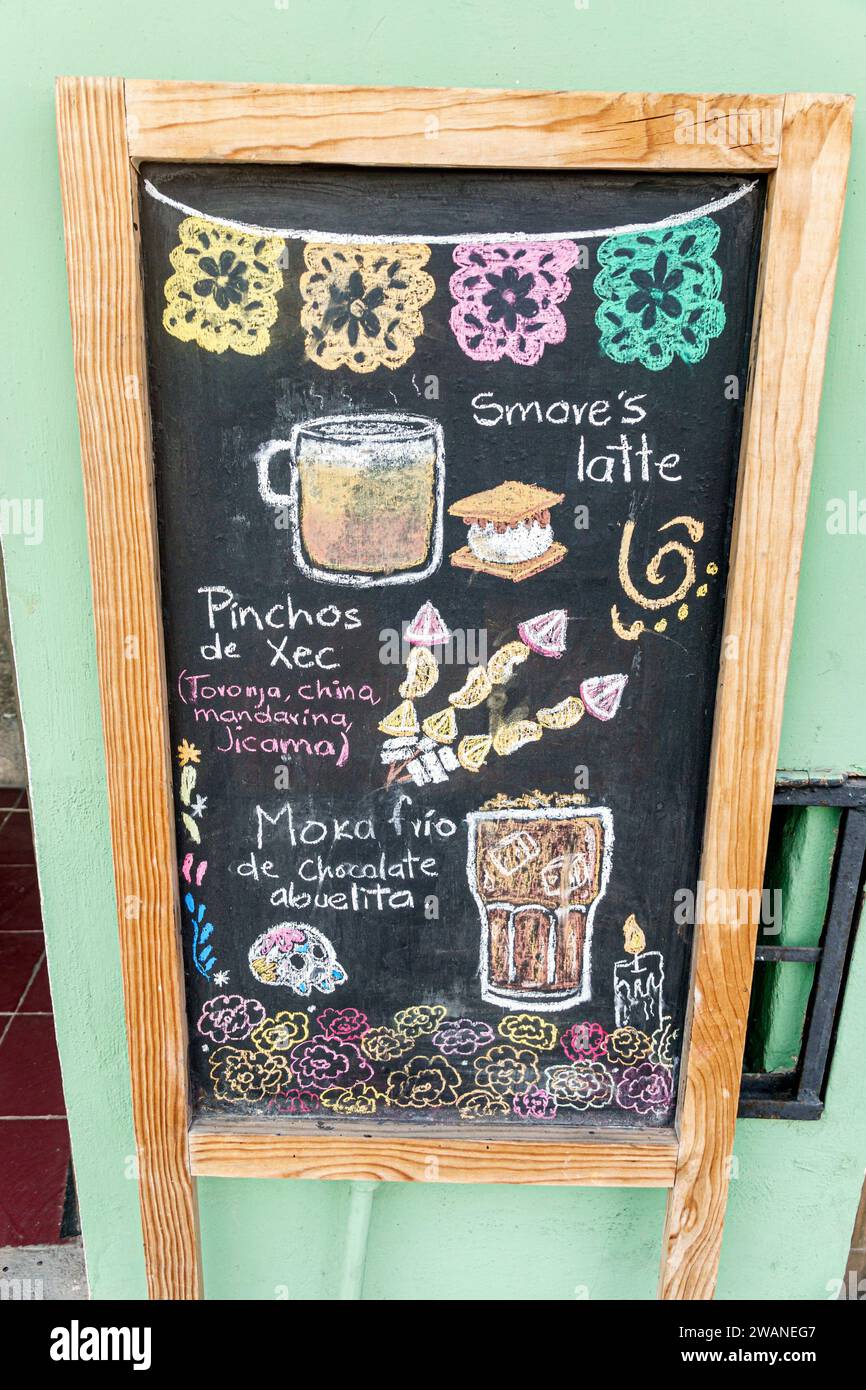 Smore's
latte
Pinchos
de Xec
(Toronja, china,
mandarina,
Jicama)
Moka frío
de chocolate
abuelita.
alamy
Image ID: 2WANEG7
www.alamy.com